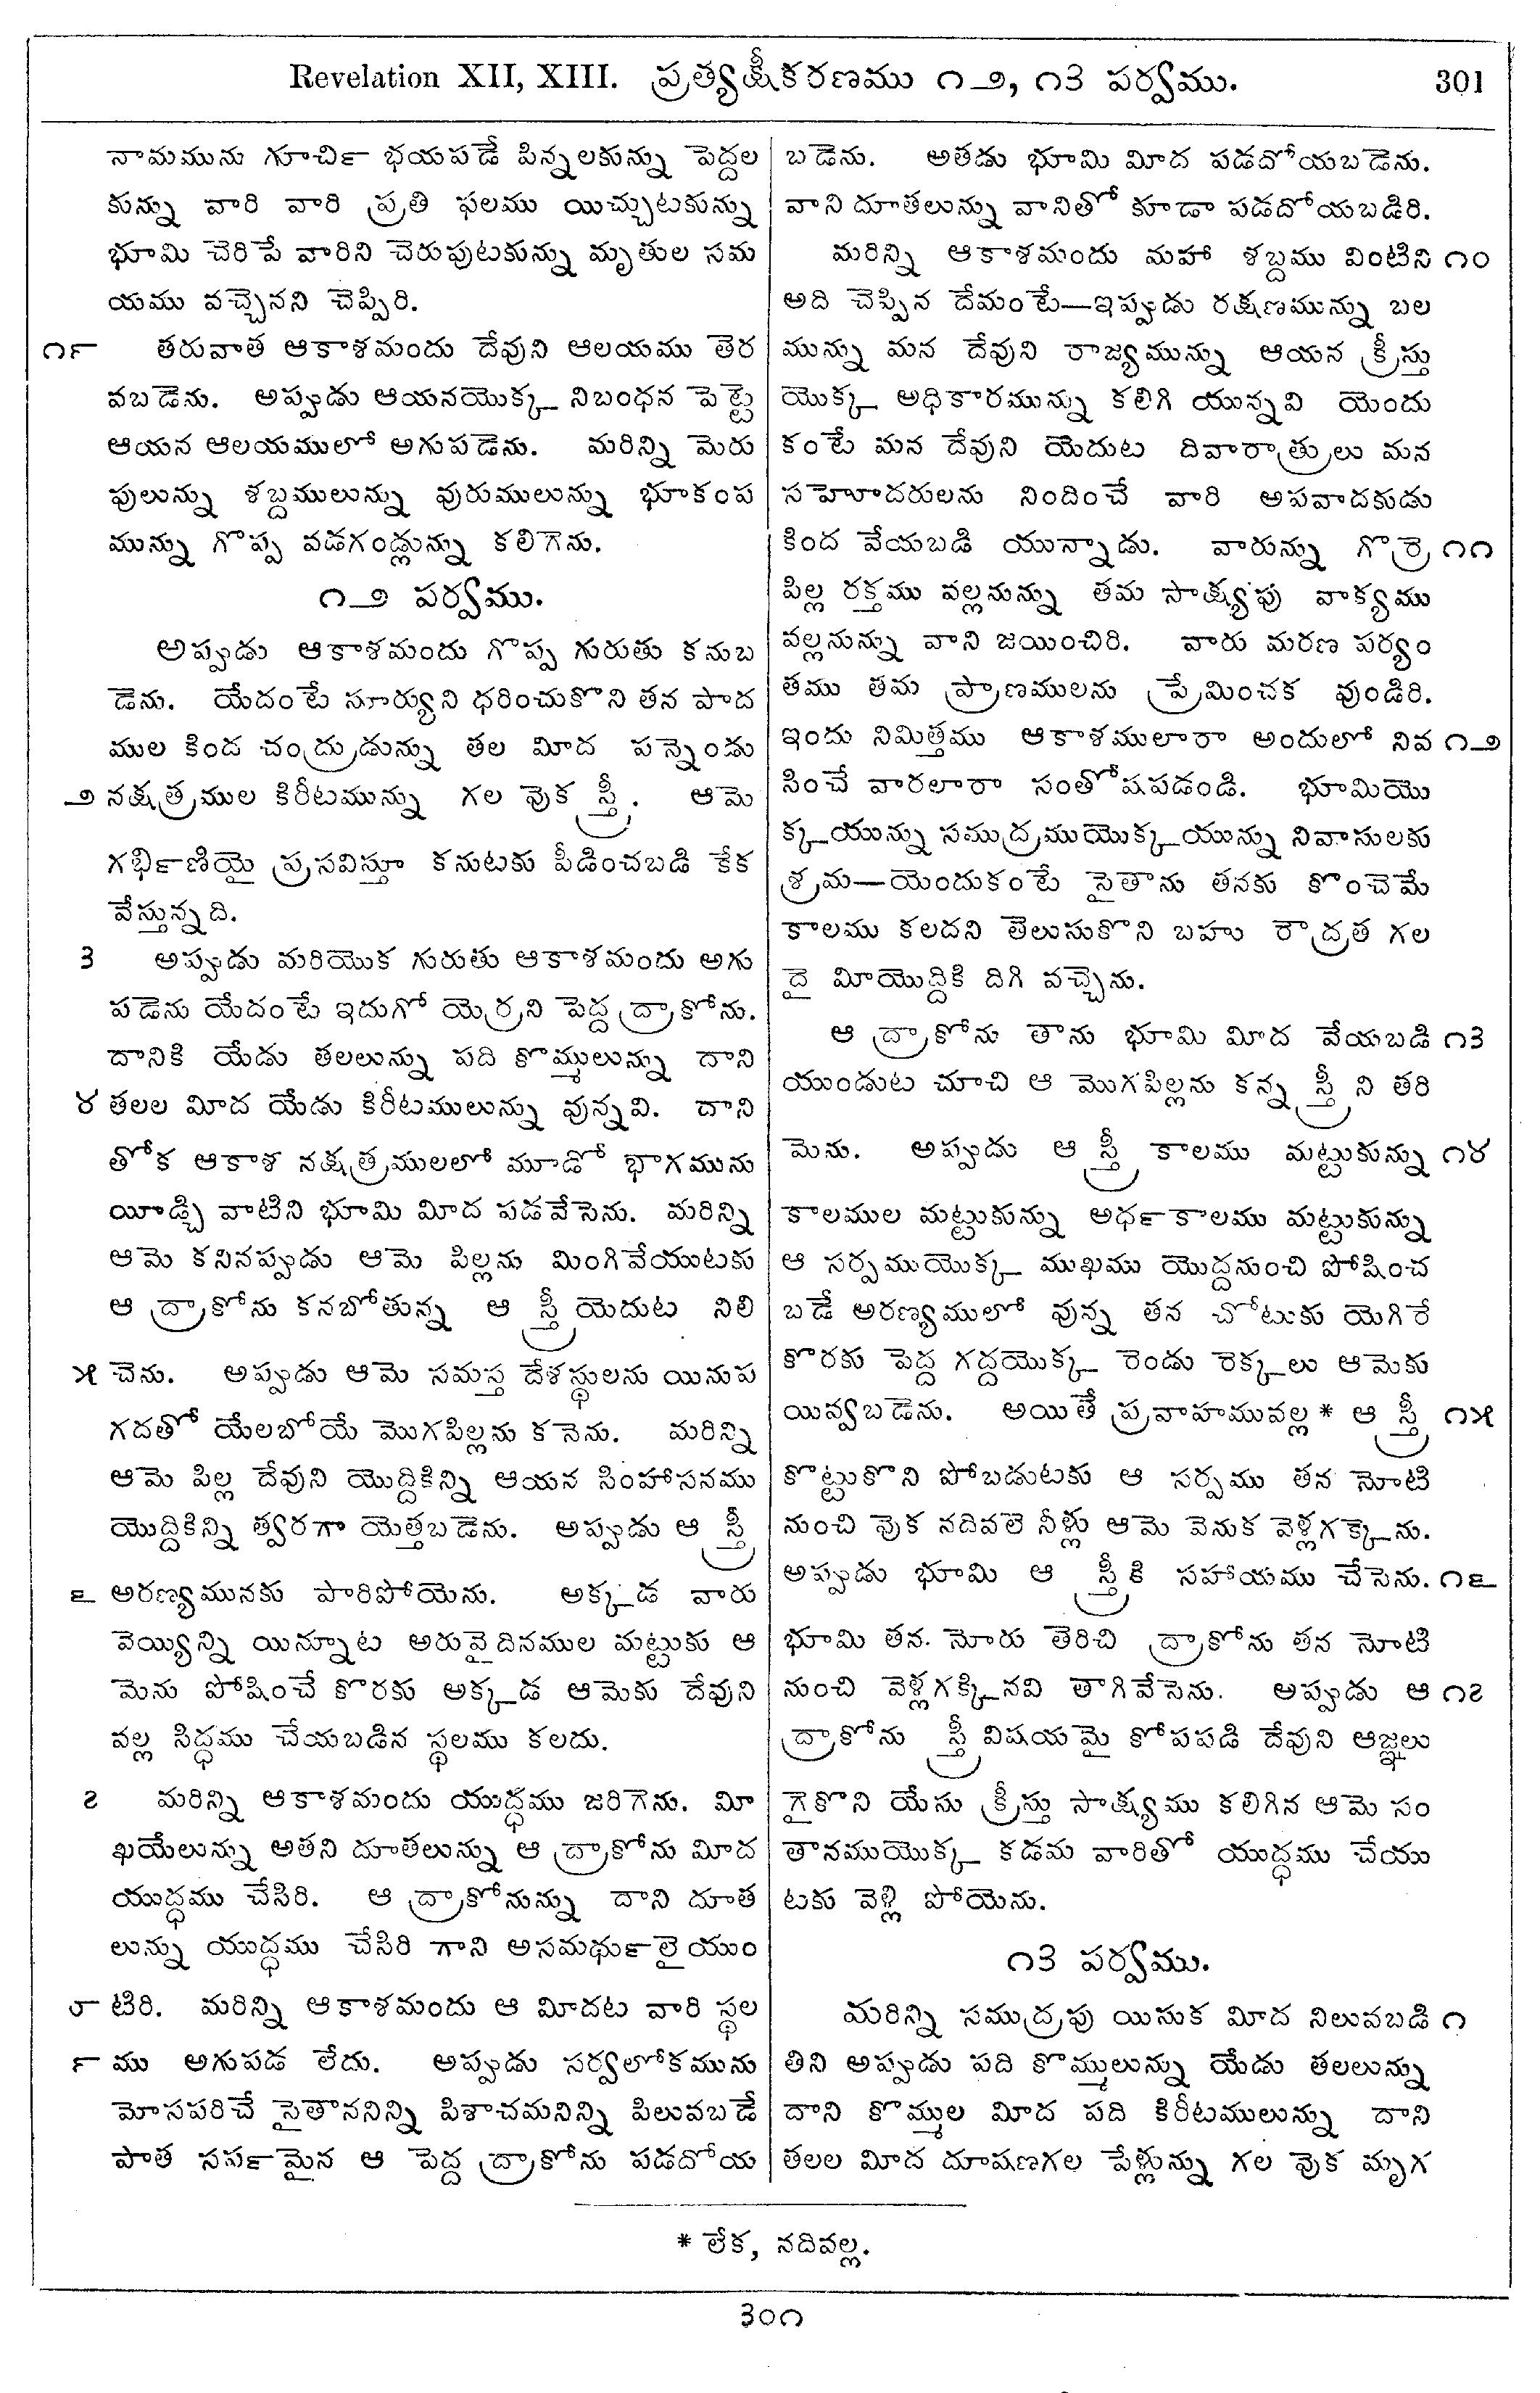 Revelation XII, XIII. ప్రత్యక్షీకరణము ౧౨, ౧౩ పర్వము. 301
నామమును గూర్చి భయపడే పిన్నలకున్ను పెద్దల
కున్ను వారి వారి ప్రతి ఫలము యిచ్చుటకున్ను
భూమి చెరిపే వారిని చెరుపుటకున్ను మృతుల సమ
యము వచ్చెనని చెప్పిరి.
౧౯ తరువాత ఆకాశమందు దేవుని ఆలయము తెర
వబడెను. అప్పుడు ఆయనయొక్క నిబంధన పెట్టె
ఆయన ఆలయములో అగుపడెను. మరిన్ని మెరు
పులున్ను శబ్దములున్ను వురుములున్ను భూకంప
మున్ను గొప్ప వడగండ్లున్ను కలిగెను.
౧౨ పర్వము.
అప్పుడు ఆకాశమందు గొప్ప గురుతు కనుబ
డెను. యేదంటే సూర్యుని ధరించుకొని తన పాద
ముల కింద చంద్రుడున్ను తల మీద పన్నెండు
౨ నక్షత్రముల కిరీటమున్ను గల వుక స్త్రీ. ఆమె
గర్భిణియై ప్రసవిస్తూ కనుటకు పీడించబడి కేక
వేస్తున్నది.
౩ అప్పుడు మరియొక గురుతు ఆకాశమందు అగు
పడెను యేదంటే ఇదుగో యెర్రని పెద్ద ద్రాకోను.
దానికి యేడు తలలున్ను పది కొమ్ములున్ను దాని
౪ తలల మీద యేడు కిరీటములున్ను వున్నవి. దాని
తోక ఆకాశ నక్షత్రములలో మూడో భాగమును
యీడ్చి వాటిని భూమి మీద పడవేసెను. మరిన్ని
ఆమె కనినప్పుడు ఆమె పిల్లను మింగివేయుటకు
ఆ ద్రాకోను కనబోతున్న ఆ స్త్రీ యెదుట నిలి
౫ చెను. అప్పుడు ఆమె సమస్త దేశస్థులను యినుప
గదతో యేలబోయే మొగపిల్లను కనెను. మరిన్ని
ఆమె పిల్ల దేవుని యొద్దికిన్ని ఆయన సింహాసనము
యొద్దికిన్ని త్వరగా యెత్తబడెను. అప్పుడు ఆ స్త్రీ
౬ అరణ్యమునకు పారిపోయెను. అక్కడ వారు
వెయ్యిన్ని యిన్నూట అరువైదినముల మట్టుకు ఆ
మెను పోషించే కొరకు అక్కడ ఆమెకు దేవుని
వల్ల సిద్ధము చేయబడిన స్థలము కలదు.
౭ మరిన్ని ఆకాశమందు యుద్ధము జరిగెను. మీ
ఖయేలున్ను అతని దూతలున్ను ఆ ద్రాకోను మీద
యుద్ధము చేసిరి. ఆ ద్రాకోనున్ను దాని దూత
లున్ను యుద్ధము చేసిరి గాని అసమర్థులైయుం
౮ టిరి. మరిన్ని ఆకాశమందు ఆ మీదట వారి స్థల
౯ ము అగుపడ లేదు. అప్పుడు సర్వలోకమును
మోసపరిచే సైతాననిన్ని పిశాచమనిన్ని పిలువబడే
పాత సర్పమైన ఆ పెద్ద ద్రాకోను పడదోయ
బడెను. అతడు భూమి మీద పడదోయబడెను.
వాని దూతలున్ను వానితో కూడా పడదోయబడిరి.
మరిన్ని ఆకాశమందు మహా శబ్దము వింటిని ౧౦
అది చెప్పిన దేమంటే—ఇప్పుడు రక్షణమున్ను బల
మున్ను మన దేవుని రాజ్యమున్ను ఆయన క్రీస్తు
యొక్క అధికారమున్ను కలిగి యున్నవి యెందు
కంటే మన దేవుని యెదుట దివారాత్రులు మన
సహోదరులను నిందించే వారి అపవాదకుడు
కింద వేయబడి యున్నాడు. వారున్ను గొర్రె ౧౧
పిల్ల రక్తము వల్లనున్ను తమ సాక్ష్యపు వాక్యము
వల్లనున్ను వాని జయించిరి. వారు మరణ పర్యం
తము తమ ప్రాణములను ప్రేమించక వుండిరి.
ఇందు నిమిత్తము ఆకాశములారా అందులో నివ ౧౨
సించే వారలారా సంతోషపడండి. భూమియొ
క్కయున్ను సముద్రముయొక్కయున్ను నివాసులకు
శ్రమ—యెందుకంటే సైతాను తనకు కొంచెమే
కాలము కలదని తెలుసుకొని బహు రౌద్రత గల
దై మీయొద్దికి దిగి వచ్చెను.
ఆ ద్రాకోను తాను భూమి మీద వేయబడి ౧౩
యుండుట చూచి ఆ మొగపిల్లను కన్న స్త్రీ ని తరి
మెను. అప్పుడు ఆ స్త్రీ కాలము మట్టుకున్ను ౧౪
కాలముల మట్టుకున్ను అర్ధకాలము మట్టుకున్ను
ఆ సర్పముయొక్క ముఖము యొద్దనుంచి పోషించ
బడే అరణ్యములో వున్న తన చోటుకు యెగిరే
కొరకు పెద్ద గద్దయొక్క రెండు రెక్కలు ఆమెకు
యివ్వబడెను. అయితే ప్రవాహమువల్ల * ఆ స్త్రీ ౧౫
కొట్టుకొని పోబడుటకు ఆ సర్పము తన నోటి
నుంచి వుక నదివలె నీళ్లు ఆమె వెనుక వెళ్లగక్కెను.
అప్పుడు భూమి ఆ స్త్రీకి సహాయము చేసెను. ౧౬
భూమి తన నోరు తెరిచి ద్రాకోను తన నోటి
నుంచి వెళ్లగక్కినవి తాగివేసెను. అప్పుడు ఆ ౧౭
ద్రాకోను స్త్రీ విషయమై కోపపడి దేవుని ఆజ్ఞలు
గైకొని యేసు క్రీస్తు సాక్ష్యము కలిగిన ఆమె సం
తానముయొక్క కడమ వారితో యుద్ధము చేయు
టకు వెళ్లి పోయెను.
౧౩ పర్వము.
మరిన్ని సముద్రపు యిసుక మీద నిలువబడి ౧
తిని అప్పుడు పది కొమ్ములున్ను యేడు తలలున్ను
దాని కొమ్ముల మీద పది కిరీటములున్ను దాని
తలల మీద దూషణగల పేళ్లున్ను గల వుక మృగ
* లేక, నదివల్ల.
౩౦౧